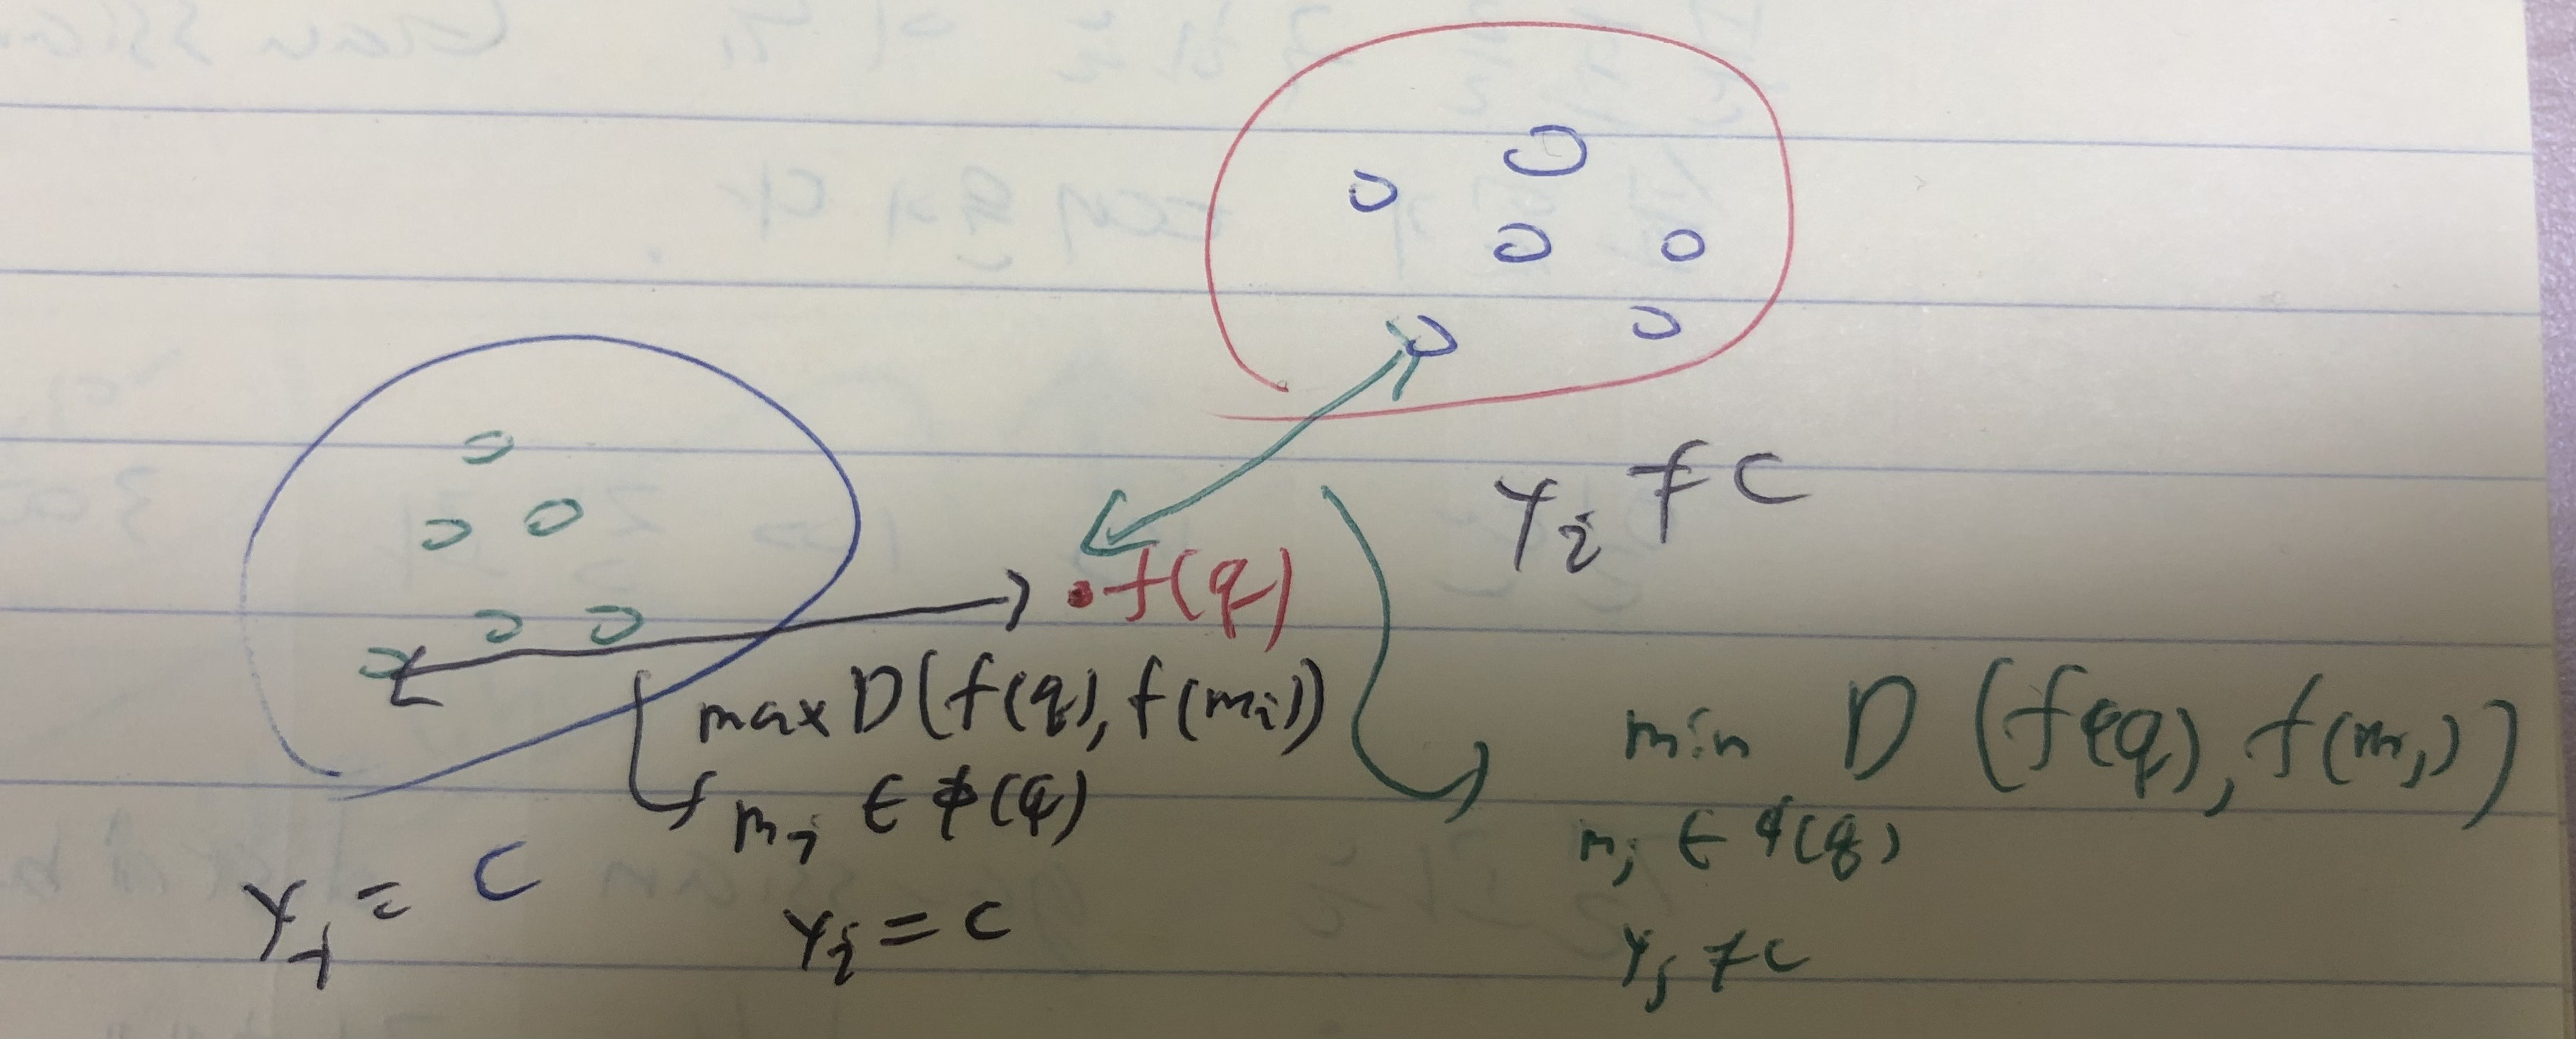 y_i ≠ c
f(q)
max D(f(q), f(m_i))
m_j ∈ φ(q)
y_i = c
y_j = c
min D (f(q), f(m_j))
m_j ∈ φ(q)
y_j ≠ c